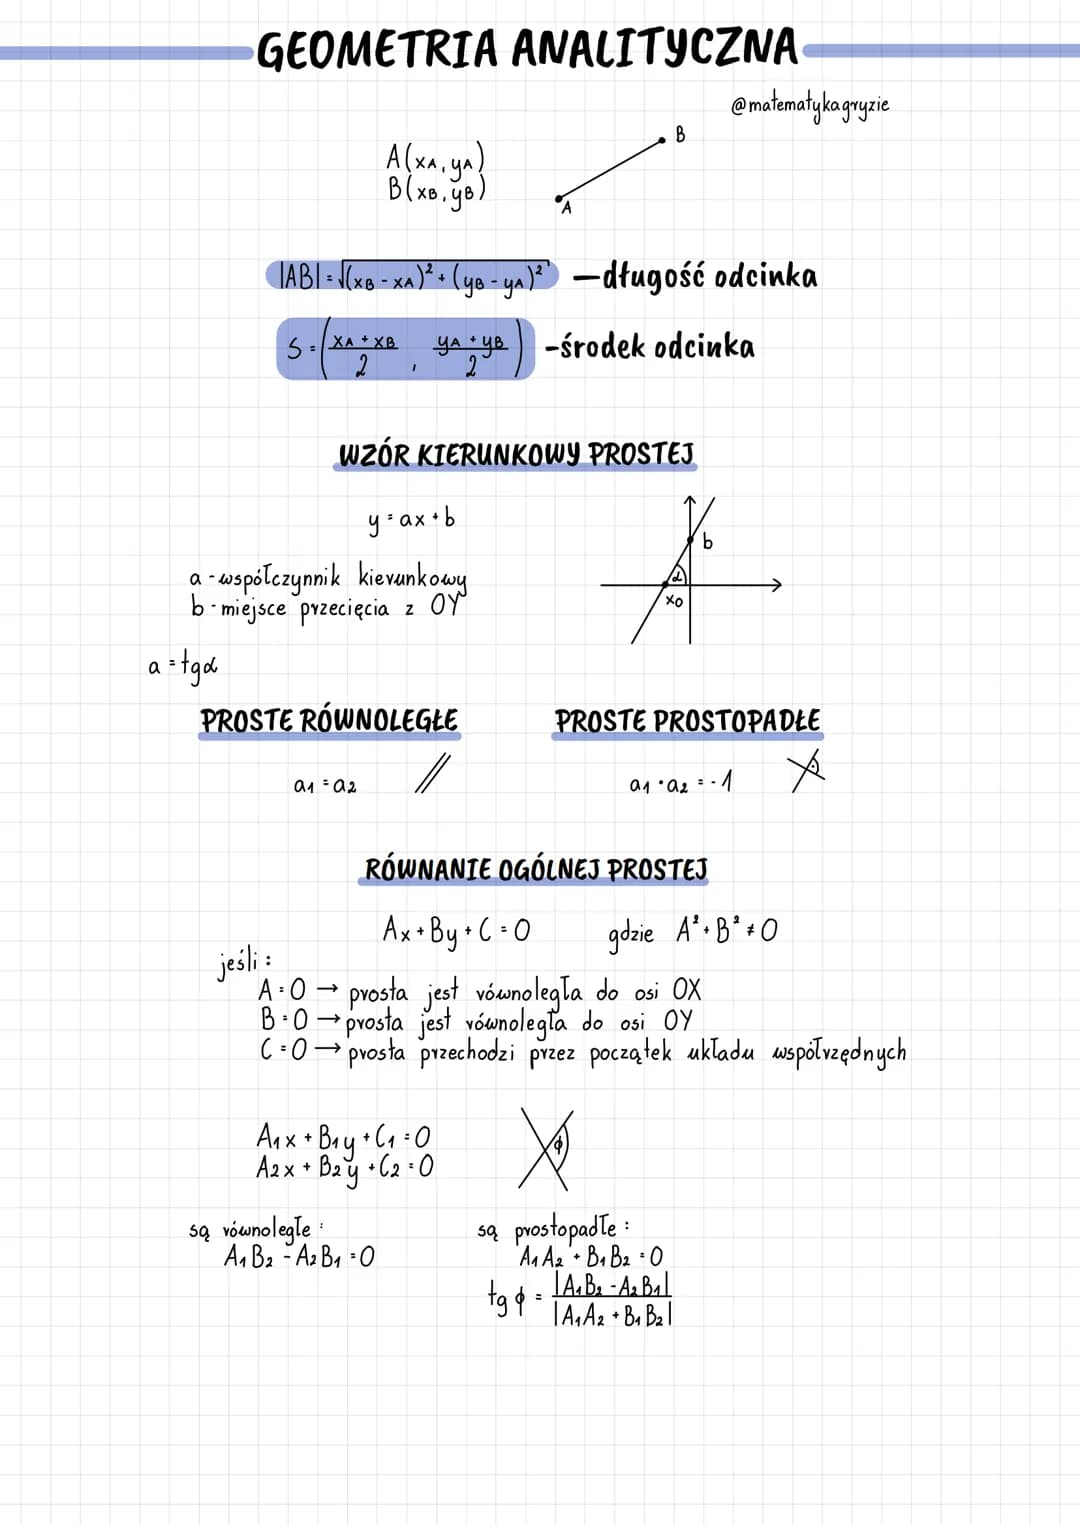 GEOMETRIA ANALITYCZNA
@matematykagryzie
A(xA, yA)
B(xB, yB)
A
B
|AB| = √(xB - xA)² + (yB - yA)² — długość odcinka
S = (xA + xB / 2 , yA + yB / 2) - środek odcinka
WZÓR KIERUNKOWY PROSTEJ
y = ax + b
a - współczynnik kierunkowy
b - miejsce przecięcia z OY
b
α
x0
a = tgα
PROSTE RÓWNOLEGŁE
a1 = a2
PROSTE PROSTOPADŁE
a1 · a2 = -1
RÓWNANIE OGÓLNEJ PROSTEJ
Ax + By + C = 0 gdzie A² + B² ≠ 0
jeśli:
A = 0 → prosta jest równoległa do osi OX
B = 0 → prosta jest równoległa do osi OY
C = 0 → prosta przechodzi przez początek układu współrzędnych
A1x + B1y + C1 = 0
A2x + B2y + C2 = 0
ϕ
są równoległe:
A1B2 - A2B1 = 0
są prostopadłe:
A1A2 + B1B2 = 0
tg ϕ = |A1B2 - A2B1| / |A1A2 + B1B2|